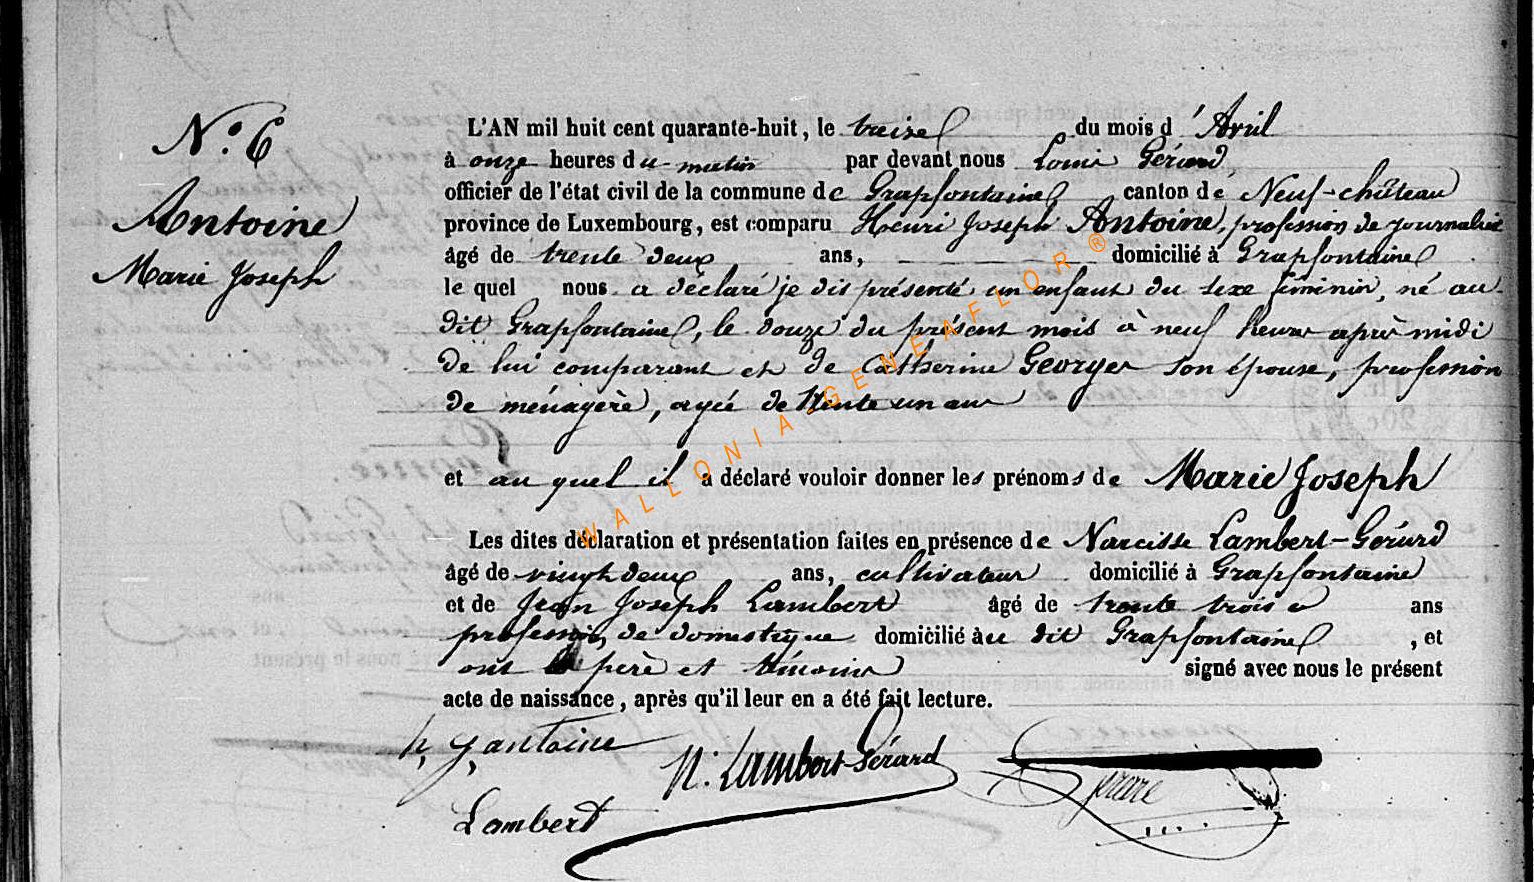 N.° 6
Antoine
Marie Joseph
L'AN mil huit cent quarante-huit, le treize du mois d'Avril
à onze heures du matin par devant nous Louis Gérard,
officier de l'état civil de la commune de Grapfontaine canton de Neuf-château
province de Luxembourg, est comparu Henri Joseph Antoine, profession de journalier
âgé de trente deux ans, domicilié à Grapfontaine
le quel nous a déclaré je dis présenté un enfant du sexe féminin, né au
dit Grapfontaine, le douze du présent mois à neuf heures après midi
de lui comparant et de Catherine Georges son épouse, profession
de ménagère, agée de trente un ans
et au quel il a déclaré vouloir donner les prénoms de Marie Joseph
Les dites déclaration et présentation faites en présence de Narcisse Lambert-Gérard
âgé de vingt deux ans, cultivateur domicilié à Grapfontaine
et de Jean Joseph Lambert âgé de trente trois ans
profession de domestique domicilié au dit Grapfontaine, et
ont père et témoins signé avec nous le présent
acte de naissance, après qu'il leur en a été fait lecture.
h, j, antoine
N. Lambert-Gérard
Gérard
Lambert
WALLONIA GENEAFLOR ®